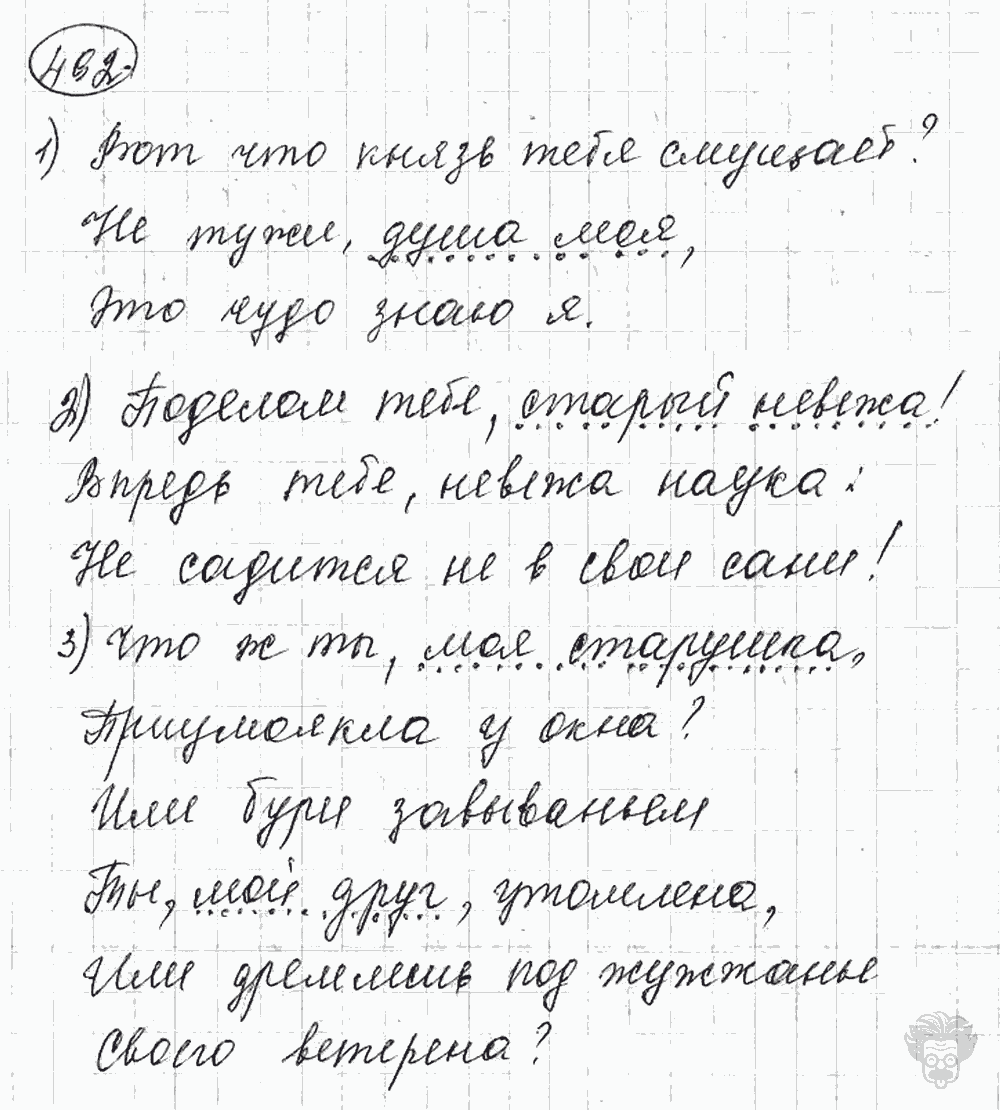 492.
1) Вот что князь тебя смущает?
Не тужи, душа моя,
Это чудо знаю я.
2) Поделом тебе, старый невежа!
Впредь тебе, невежа наука:
Не садится не в свои сани!
3) Что ж ты, моя старушка,
Приумолкла у окна?
Или бури завываньем
Ты, мой друг, утомлена,
Или дремлешь под жужжанье
Своего ветерена?